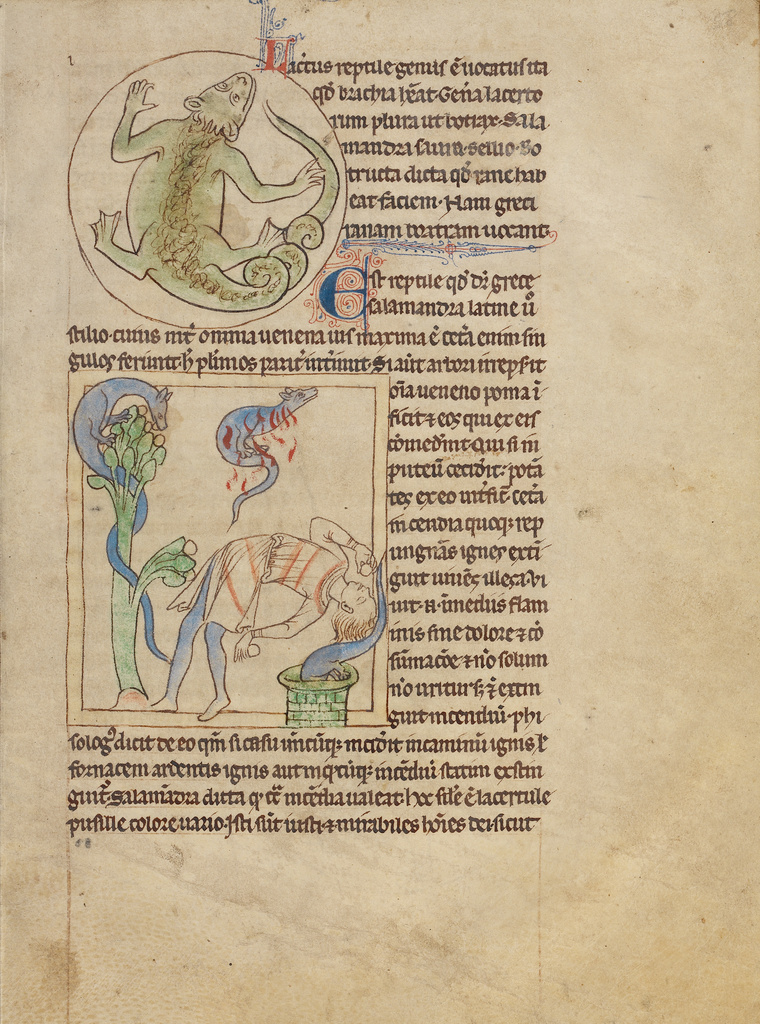 Lactus reptile genus ē uocatus ita
qd̄ brachia h̄eat. Gen̄a lacerto
rum plura ut botrax. Sala
mandra saura. sellio. Bo
tructa dicta qd̄ rane hab
eat faciem. Nam greci
ranam botram uocant.
Est reptile qd̄ dr̄ grece
salamandra latine ū
stilio. cuius int̄ omnia uenena uis maxima ē cet̄a enim sin
gulos feriunt h̄ plimos parit̄ int̄imit. Si aūt arbori irrepsit
om̄ia ueneno poma ī
ficit ⁊ eos qui ex eis
comedīnt. Qui si in
puteū cecidit: potā
tes ex eo int̄fic̄. cet̄a
incendia quoq; rep
ugnās ignes exti
guit
uit. n̄. ī medus flam
inis sine dolore ⁊ cō
sūmacōe ⁊ nō solum
nō uritur s; ⁊ extin
guit incendiū. phi
sologꝰ dicit de eo qm̄ si casu ūncūq; incidit in caminū ignis ł
fornacem ardentis ignis aut in qcūq; incēdiū statim extin
guit̄. Salamādra dicta q. ct̄ incēdia ualeat. hec file ē lacertule
pusille colore uario. Isti sūt iusti ⁊ mirabiles hoīes dei sicut